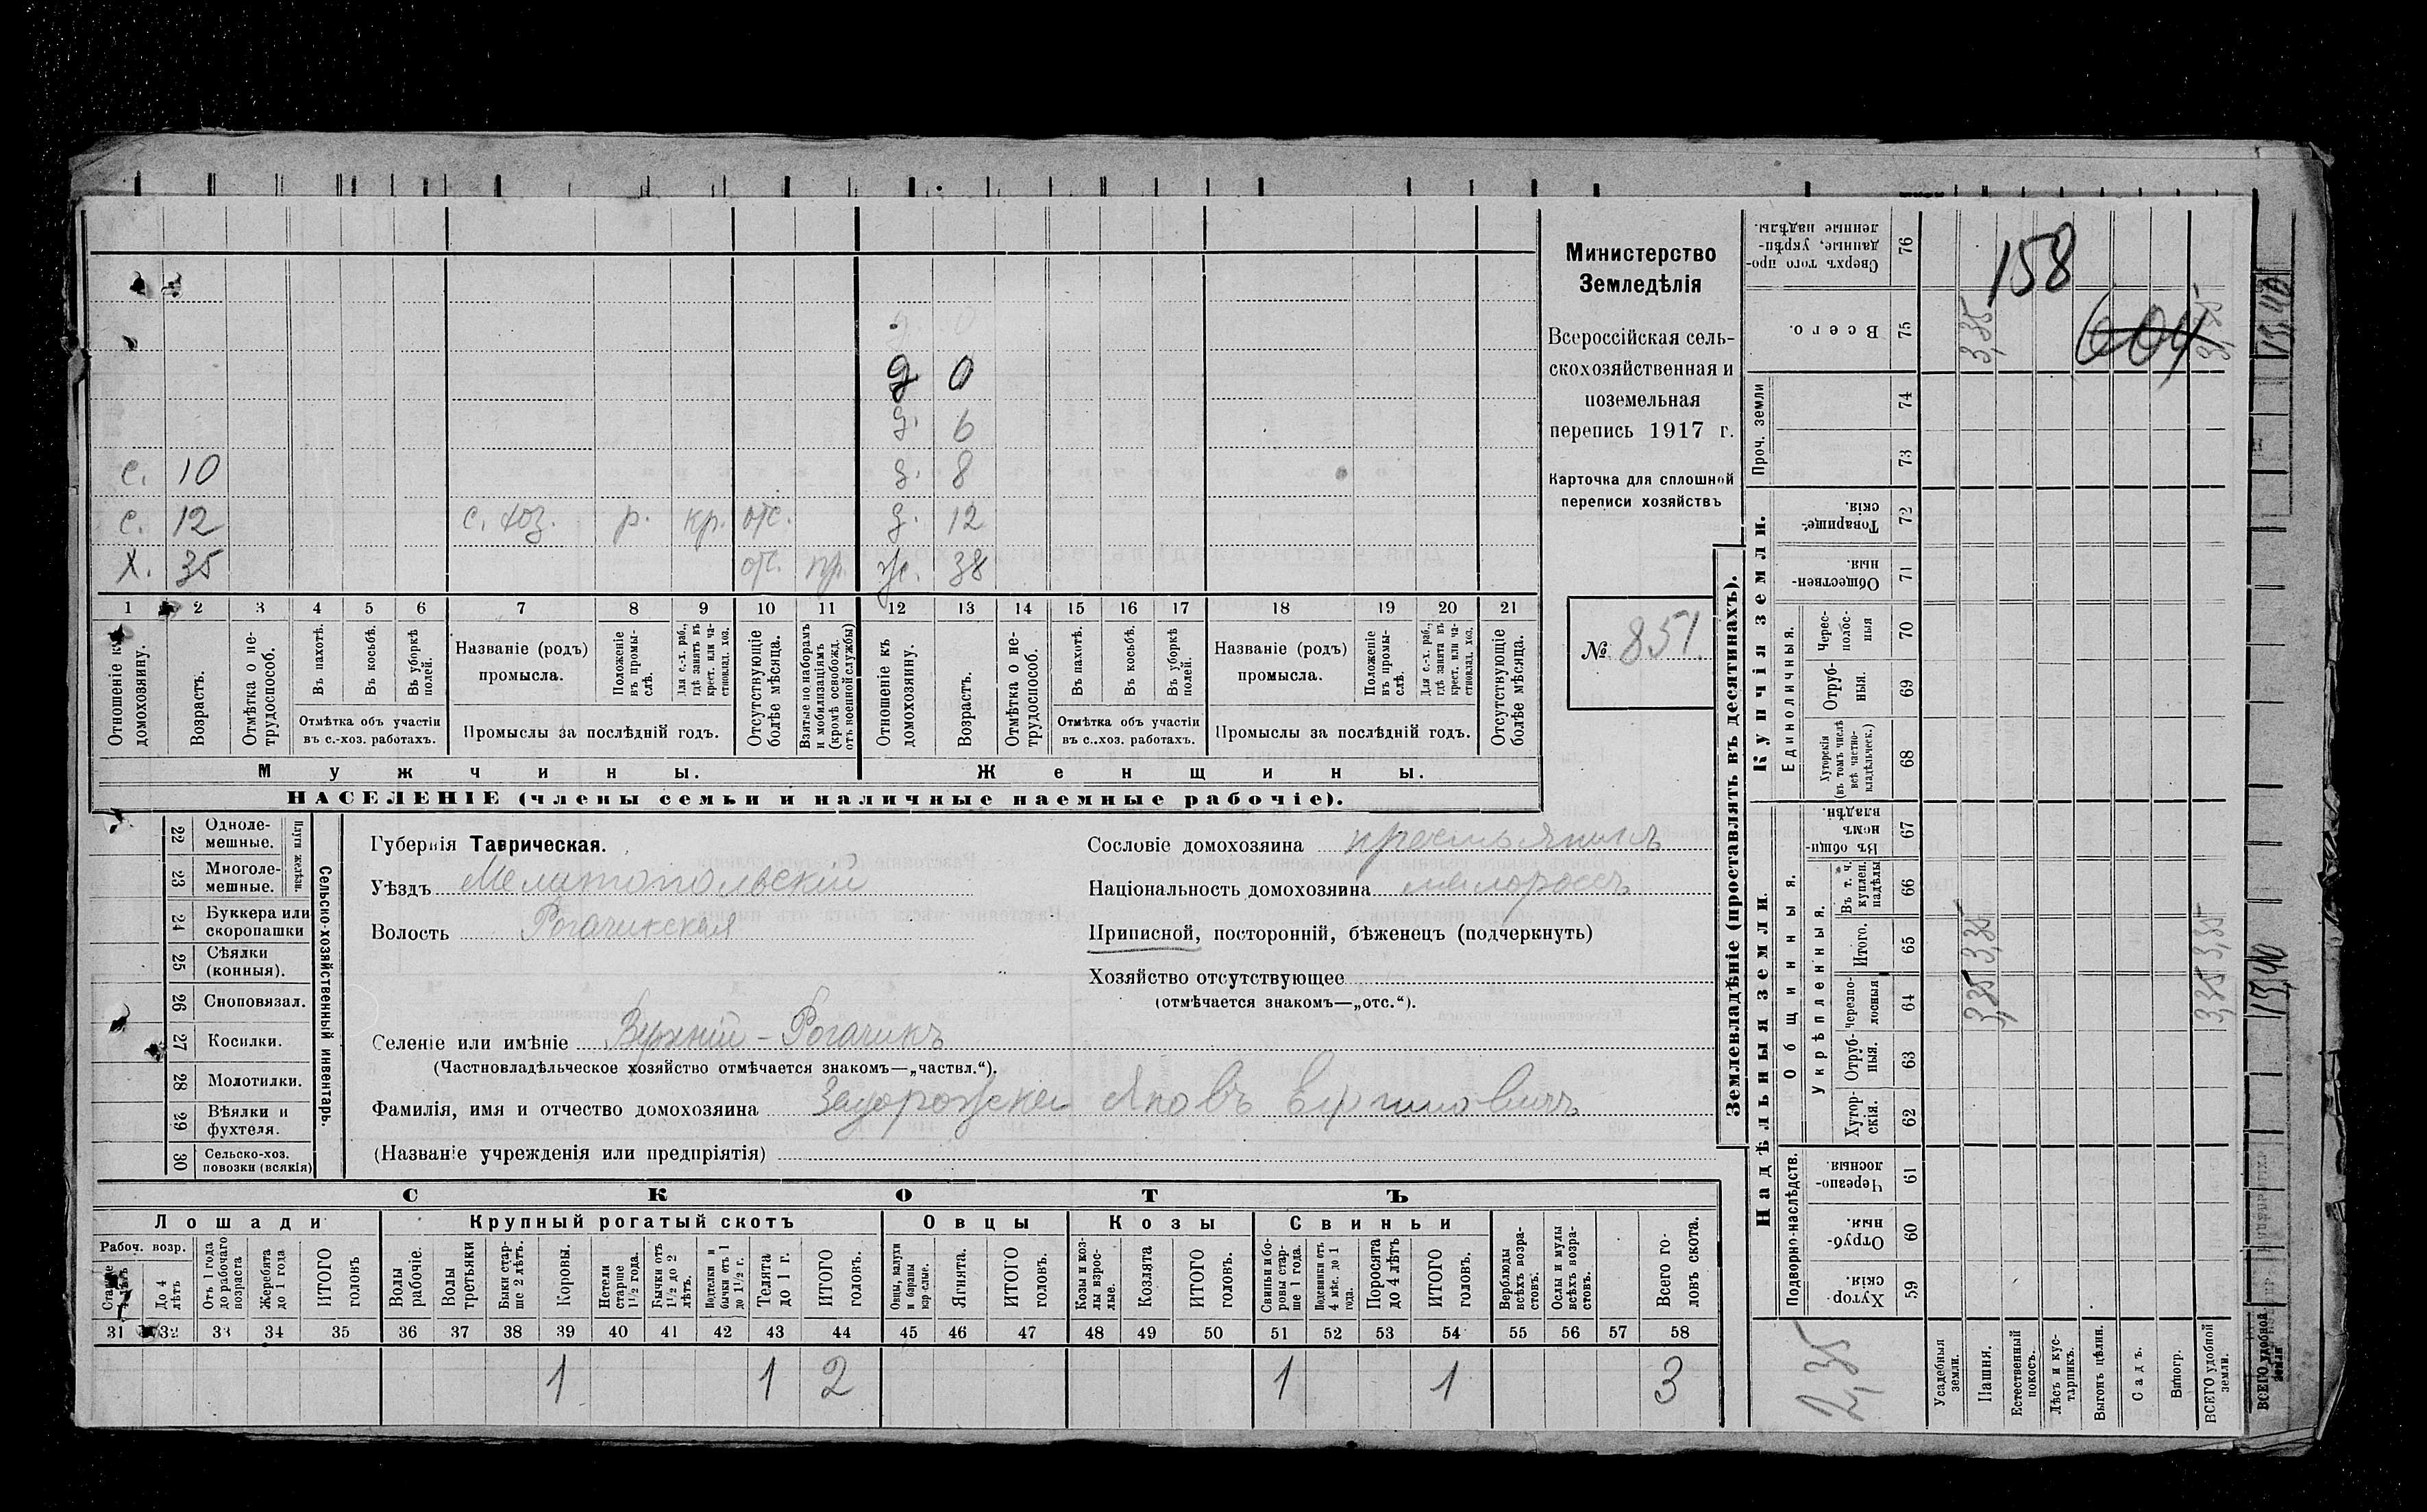 Министерство
Земледѣлія
Всероссійская сель-
скохозяйственная и
поземельная
перепись 1917 г.
Карточка для сплошной
переписи хозяйствъ
№ 851.
158
604
д 0
д. 6
с. 10 д. 8
с. 12 с. хоз. р. кр. отс. д. 12
х. 35 отс. пр. ж. 38
1 2 3 4 5 6 7 8 9 10 11 12 13 14 15 16 17 18 19 20 21
Отношеніе къ домохозяину.
Возрастъ.
Отмѣтка о не-трудоспособ.
Въ пахотѣ.
Въ косьбѣ.
Въ уборкѣ полей.
Отмѣтка объ участіи въ с.-хоз. работахъ.
Названіе (родъ) промысла.
Положеніе въ промы-слѣ.
Для с.-х. раб., гдѣ занятъ въ крест. или ча-стновлад. хоз.
Промыслы за послѣдній годъ.
Отсутствующіе болѣе мѣсяца.
Взятые по наборамъ и мобилизаціямъ (кромѣ освобожд. отъ военной службы)
Отношеніе къ домохозяину.
Возрастъ.
Отмѣтка о не-трудоспособ.
Въ пахотѣ.
Въ косьбѣ.
Въ уборкѣ полей.
Отмѣтка объ участіи въ с.-хоз. работахъ.
Названіе (родъ) промысла.
Положеніе въ промы-слѣ.
Для с.-х. раб., гдѣ занята въ крест. или ча-стновлад. хоз.
Промыслы за послѣдній годъ.
Отсутствующіе болѣе мѣсяца.
Мужчины. Женщины.
НАСЕЛЕНІЕ (члены семьи и наличные наемные рабочіе).
Сельско-хозяйственный инвентарь.
Плуги желѣзн.
22 Одноле-мешные.
23 Многоле-мешные.
24 Буккера или скоропашки
25 Сѣялки (конныя).
26 Сноповязал.
27 Косилки.
28 Молотилки.
29 Вѣялки и фухтеля.
30 Сельско-хоз. повозки (всякія)
Губернія Таврическая.
Уѣздъ Мелитопольскій
Волость Рогачикская
Селеніе или имѣніе Верхній-Рогачикъ
(Частновладѣльческое хозяйство отмѣчается знакомъ—„частвл.“).
Сословіе домохозяина крестьянинъ
Національность домохозяина малороссъ
Приписной, посторонній, бѣженецъ (подчеркнуть)
Хозяйство отсутствующее
(отмѣчается знакомъ—„отс.“).
Фамилія, имя и отчество домохозяина Яковъ
(Названіе учрежденія или предпріятія)
СКОТЪ
Лошади Крупный рогатый скотъ Овцы Козы Свиньи
Рабоч. возр.
До 4 лѣтъ
Отъ 1 года до рабочаго возраста
Жеребята до 1 года
ИТОГО головъ
Волы рабочіе.
Волы третьяки
Быки стар-ше 2 лѣтъ.
Коровы.
Нетели старше 1½ года.
Бычки отъ 1½ до 2 лѣтъ.
Подтелки и бычки отъ 1 до 1½ г.
Телята до 1 г.
ИТОГО головъ.
Овцы, валухи и бараны взр-слые.
Ягнята.
ИТОГО головъ.
Козы и коз-лы взрос-лые.
Козлята
ИТОГО головъ.
Свиньи и бо-ровы стар-ше 1 года.
Подсвинки отъ 4 мѣс. до 1 года.
Поросята до 4 лѣтъ
ИТОГО головъ.
Верблюды всѣхъ возра-стовъ.
Ослы и мулы всѣхъ возра-стовъ.
Всего го-ловъ скота.
31 32 33 34 35 36 37 38 39 40 41 42 43 44 45 46 47 48 49 50 51 52 53 54 55 56 57 58
1 1 2 1 1 3
Землевладѣніе (проставлять въ десятинахъ).
Купчія земли.
Надѣльныя земли.
Проч. земли
Единоличныя.
Общинныя.
Укрѣпленныя.
Подворно-наслѣдств.
76 Сверхъ того про-данные, укрѣп-ленные надѣлы.
75 Всего. 3,35 3,35
74
73
72 Товарище-скія.
71 Обществен-ныя.
70 Черес-полос-ныя
69 Отруб-ныя.
68 Хуторскія (въ томъ числѣ всѣ частно-владѣльческ.)
67 Въ общи-номъ владѣн.
66 Въ т. ч. куплен. надѣлы
65 Итого. 3,35 3,35
64 Черезпо-лосныя 3,35 3,35
63 Отруб-ныя.
62 Хутор-скія.
61 Черезпо-лосныя.
60 Отруб-ныя.
59 Хутор-скія.
Усадебныя земли.
Пашня.
Естественный покосъ.
Лѣсъ и кус-тарникъ.
Выгонъ цѣлин.
Садъ.
Виногр.
ВСЕГО удобной земли.
ВСЕГО удобной земли
13,40
13,40